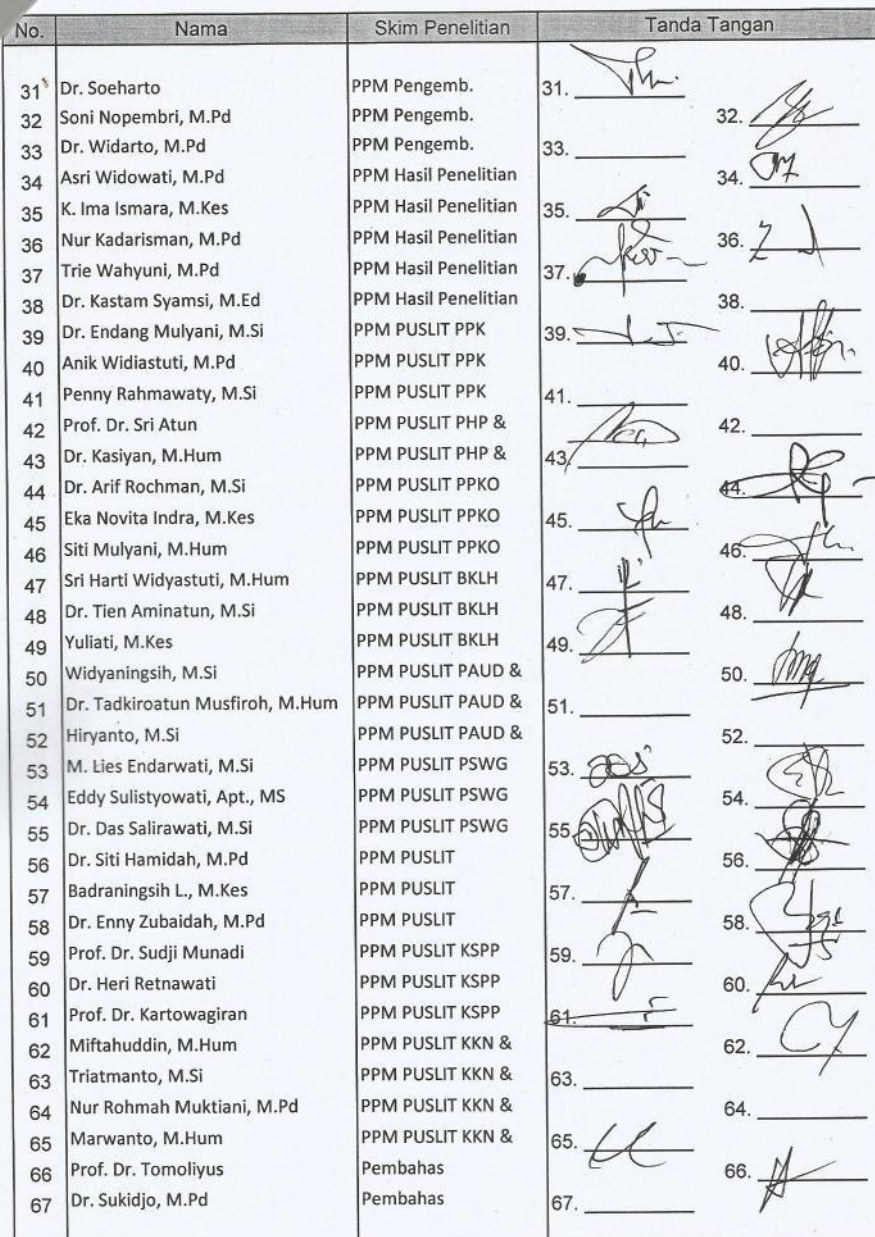 No. Nama Skim Penelitian Tanda Tangan
31 Dr. Soeharto PPM Pengemb. 31.
32 Soni Nopembri, M.Pd PPM Pengemb. 32.
33 Dr. Widarto, M.Pd PPM Pengemb. 33.
34 Asri Widowati, M.Pd PPM Hasil Penelitian 34.
35 K. Ima Ismara, M.Kes PPM Hasil Penelitian 35.
36 Nur Kadarisman, M.Pd PPM Hasil Penelitian 36.
37 Trie Wahyuni, M.Pd PPM Hasil Penelitian 37.
38 Dr. Kastam Syamsi, M.Ed PPM Hasil Penelitian 38.
39 Dr. Endang Mulyani, M.Si PPM PUSLIT PPK 39.
40 Anik Widiastuti, M.Pd PPM PUSLIT PPK 40.
41 Penny Rahmawaty, M.Si PPM PUSLIT PPK 41.
42 Prof. Dr. Sri Atun PPM PUSLIT PHP & 42.
43 Dr. Kasiyan, M.Hum PPM PUSLIT PHP & 43.
44 Dr. Arif Rochman, M.Si PPM PUSLIT PPKO 44.
45 Eka Novita Indra, M.Kes PPM PUSLIT PPKO 45.
46 Siti Mulyani, M.Hum PPM PUSLIT PPKO 46.
47 Sri Harti Widyastuti, M.Hum PPM PUSLIT BKLH 47.
48 Dr. Tien Aminatun, M.Si PPM PUSLIT BKLH 48.
49 Yuliati, M.Kes PPM PUSLIT BKLH 49.
50 Widyaningsih, M.Si PPM PUSLIT PAUD & 50.
51 Dr. Tadkiroatun Musfiroh, M.Hum PPM PUSLIT PAUD & 51.
52 Hiryanto, M.Si PPM PUSLIT PAUD & 52.
53 M. Lies Endarwati, M.Si PPM PUSLIT PSWG 53.
54 Eddy Sulistyowati, Apt., MS PPM PUSLIT PSWG 54.
55 Dr. Das Salirawati, M.Si PPM PUSLIT PSWG 55.
56 Dr. Siti Hamidah, M.Pd PPM PUSLIT 56.
57 Badraningsih L., M.Kes PPM PUSLIT 57.
58 Dr. Enny Zubaidah, M.Pd PPM PUSLIT 58.
59 Prof. Dr. Sudji Munadi PPM PUSLIT KSPP 59.
60 Dr. Heri Retnawati PPM PUSLIT KSPP 60.
61 Prof. Dr. Kartowagiran PPM PUSLIT KSPP 61.
62 Miftahuddin, M.Hum PPM PUSLIT KKN & 62.
63 Triatmanto, M.Si PPM PUSLIT KKN & 63.
64 Nur Rohmah Muktiani, M.Pd PPM PUSLIT KKN & 64.
65 Marwanto, M.Hum PPM PUSLIT KKN & 65.
66 Prof. Dr. Tomoliyus Pembahas 66.
67 Dr. Sukidjo, M.Pd Pembahas 67.